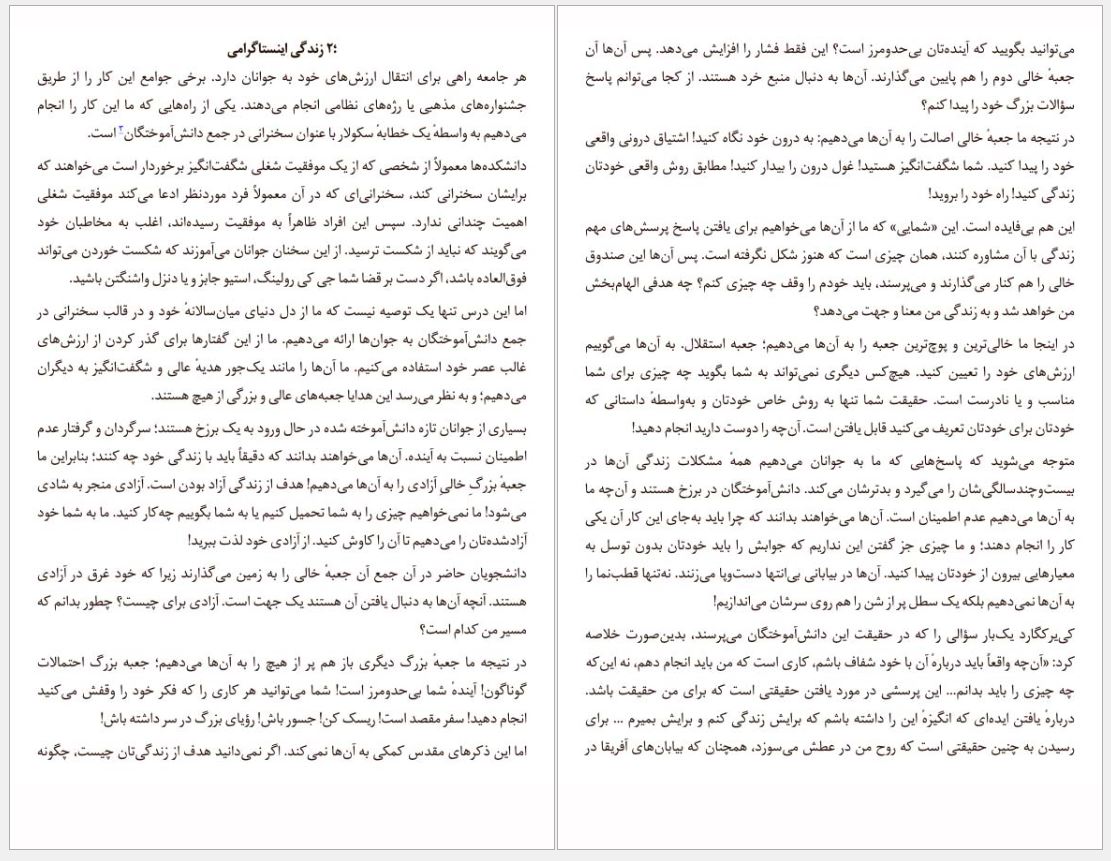 ؛۲ زندگی اینستاگرامی
هر جامعه راهی برای انتقال ارزش‌های خود به جوانان دارد. برخی جوامع این کار را از طریق
جشنواره‌های مذهبی یا رژه‌های نظامی انجام می‌دهند. یکی از راه‌هایی که ما این کار را انجام
می‌دهیم به واسطهٔ یک خطابهٔ سکولار با عنوان سخنرانی در جمع دانش‌آموختگان۳ است.
دانشکده‌ها معمولاً از شخصی که از یک موفقیت شغلی شگفت‌انگیز برخوردار است می‌خواهند که
برایشان سخنرانی کند، سخنرانی‌ای که در آن معمولاً فرد موردنظر ادعا می‌کند موفقیت شغلی
اهمیت چندانی ندارد. سپس این افراد ظاهراً به موفقیت رسیده‌اند، اغلب به مخاطبان خود
می‌گویند که نباید از شکست ترسید. از این سخنان جوانان می‌آموزند که شکست خوردن می‌تواند
فوق‌العاده باشد، اگر دست بر قضا شما جی کی رولینگ، استیو جابز و یا دنزل واشنگتن باشید.
اما این درس تنها یک توصیه نیست که ما از دل دنیای میان‌سالانهٔ خود و در قالب سخنرانی در
جمع دانش‌آموختگان به جوان‌ها ارائه می‌دهیم. ما از این گفتارها برای گذر کردن از ارزش‌های
غالب عصر خود استفاده می‌کنیم. ما آن‌ها را مانند یک‌جور هدیهٔ عالی و شگفت‌انگیز به دیگران
می‌دهیم؛ و به نظر می‌رسد این هدایا جعبه‌های عالی و بزرگی از هیچ هستند.
بسیاری از جوانان تازه دانش‌آموخته شده در حال ورود به یک برزخ هستند؛ سرگردان و گرفتار عدم
اطمینان نسبت به آینده. آن‌ها می‌خواهند بدانند که دقیقاً باید با زندگی خود چه کنند؛ بنابراین ما
جعبهٔ بزرگِ خالیِ آزادی را به آن‌ها می‌دهیم! هدف از زندگی آزاد بودن است. آزادی منجر به شادی
می‌شود! ما نمی‌خواهیم چیزی را به شما تحمیل کنیم یا به شما بگوییم چه‌کار کنید. ما به شما خود
آزادشده‌تان را می‌دهیم تا آن را کاوش کنید. از آزادی خود لذت ببرید!
دانشجویان حاضر در آن جمع آن جعبهٔ خالی را به زمین می‌گذارند زیرا که خود غرق در آزادی
هستند. آنچه آن‌ها به دنبال یافتن آن هستند یک جهت است. آزادی برای چیست؟ چطور بدانم که
مسیر من کدام است؟
در نتیجه ما جعبهٔ بزرگ دیگری باز هم پر از هیچ را به آن‌ها می‌دهیم؛ جعبه بزرگ احتمالات
گوناگون! آیندهٔ شما بی‌حدومرز است! شما می‌توانید هر کاری را که فکر خود را وقفش می‌کنید
انجام دهید! سفر مقصد است! ریسک کن! جسور باش! رؤیای بزرگ در سر داشته باش!
اما این ذکرهای مقدس کمکی به آن‌ها نمی‌کند. اگر نمی‌دانید هدف از زندگی‌تان چیست، چگونه
می‌توانید بگویید که آینده‌تان بی‌حدومرز است؟ این فقط فشار را افزایش می‌دهد. پس آن‌ها آن
جعبهٔ خالی دوم را هم پایین می‌گذارند. آن‌ها به دنبال منبع خرد هستند. از کجا می‌توانم پاسخ
سؤالات بزرگ خود را پیدا کنم؟
در نتیجه ما جعبهٔ خالی اصالت را به آن‌ها می‌دهیم: به درون خود نگاه کنید! اشتیاق درونی واقعی
خود را پیدا کنید. شما شگفت‌انگیز هستید! غول درون را بیدار کنید! مطابق روش واقعی خودتان
زندگی کنید! راه خود را بروید!
این هم بی‌فایده است. این «شمایی» که ما از آن‌ها می‌خواهیم برای یافتن پاسخ پرسش‌های مهم
زندگی با آن مشاوره کنند، همان چیزی است که هنوز شکل نگرفته است. پس آن‌ها این صندوق
خالی را هم کنار می‌گذارند و می‌پرسند، باید خودم را وقف چه چیزی کنم؟ چه هدفی الهام‌بخش
من خواهد شد و به زندگی من معنا و جهت می‌دهد؟
در اینجا ما خالی‌ترین و پوچ‌ترین جعبه را به آن‌ها می‌دهیم؛ جعبه استقلال. به آن‌ها می‌گوییم
ارزش‌های خود را تعیین کنید. هیچ‌کس دیگری نمی‌تواند به شما بگوید چه چیزی برای شما
مناسب و یا نادرست است. حقیقت شما تنها به روش خاص خودتان و به‌واسطهٔ داستانی که
خودتان برای خودتان تعریف می‌کنید قابل یافتن است. آن‌چه را دوست دارید انجام دهید!
متوجه می‌شوید که پاسخ‌هایی که ما به جوانان می‌دهیم همهٔ مشکلات زندگی آن‌ها در
بیست‌وچندسالگی‌شان را می‌گیرد و بدترشان می‌کند. دانش‌آموختگان در برزخ هستند و آن‌چه ما
به آن‌ها می‌دهیم عدم اطمینان است. آن‌ها می‌خواهند بدانند که چرا باید به‌جای این کار آن یکی
کار را انجام دهند؛ و ما چیزی جز گفتن این نداریم که جوابش را باید خودتان بدون توسل به
معیارهایی بیرون از خودتان پیدا کنید. آن‌ها در بیابانی بی‌انتها دست‌وپا می‌زنند. نه‌تنها قطب‌نما را
به آن‌ها نمی‌دهیم بلکه یک سطل پر از شن را هم روی سرشان می‌اندازیم!
کی‌یرکگارد یک‌بار سؤالی را که در حقیقت این دانش‌آموختگان می‌پرسند، بدین‌صورت خلاصه
کرد: «آن‌چه واقعاً باید دربارهٔ آن با خود شفاف باشم، کاری است که من باید انجام دهم، نه این‌که
چه چیزی را باید بدانم... این پرسشی در مورد یافتن حقیقتی است که برای من حقیقت باشد.
دربارهٔ یافتن ایده‌ای که انگیزهٔ این را داشته باشم که برایش زندگی کنم و برایش بمیرم ... برای
رسیدن به چنین حقیقتی است که روح من در عطش می‌سوزد، همچنان که بیابان‌های آفریقا در